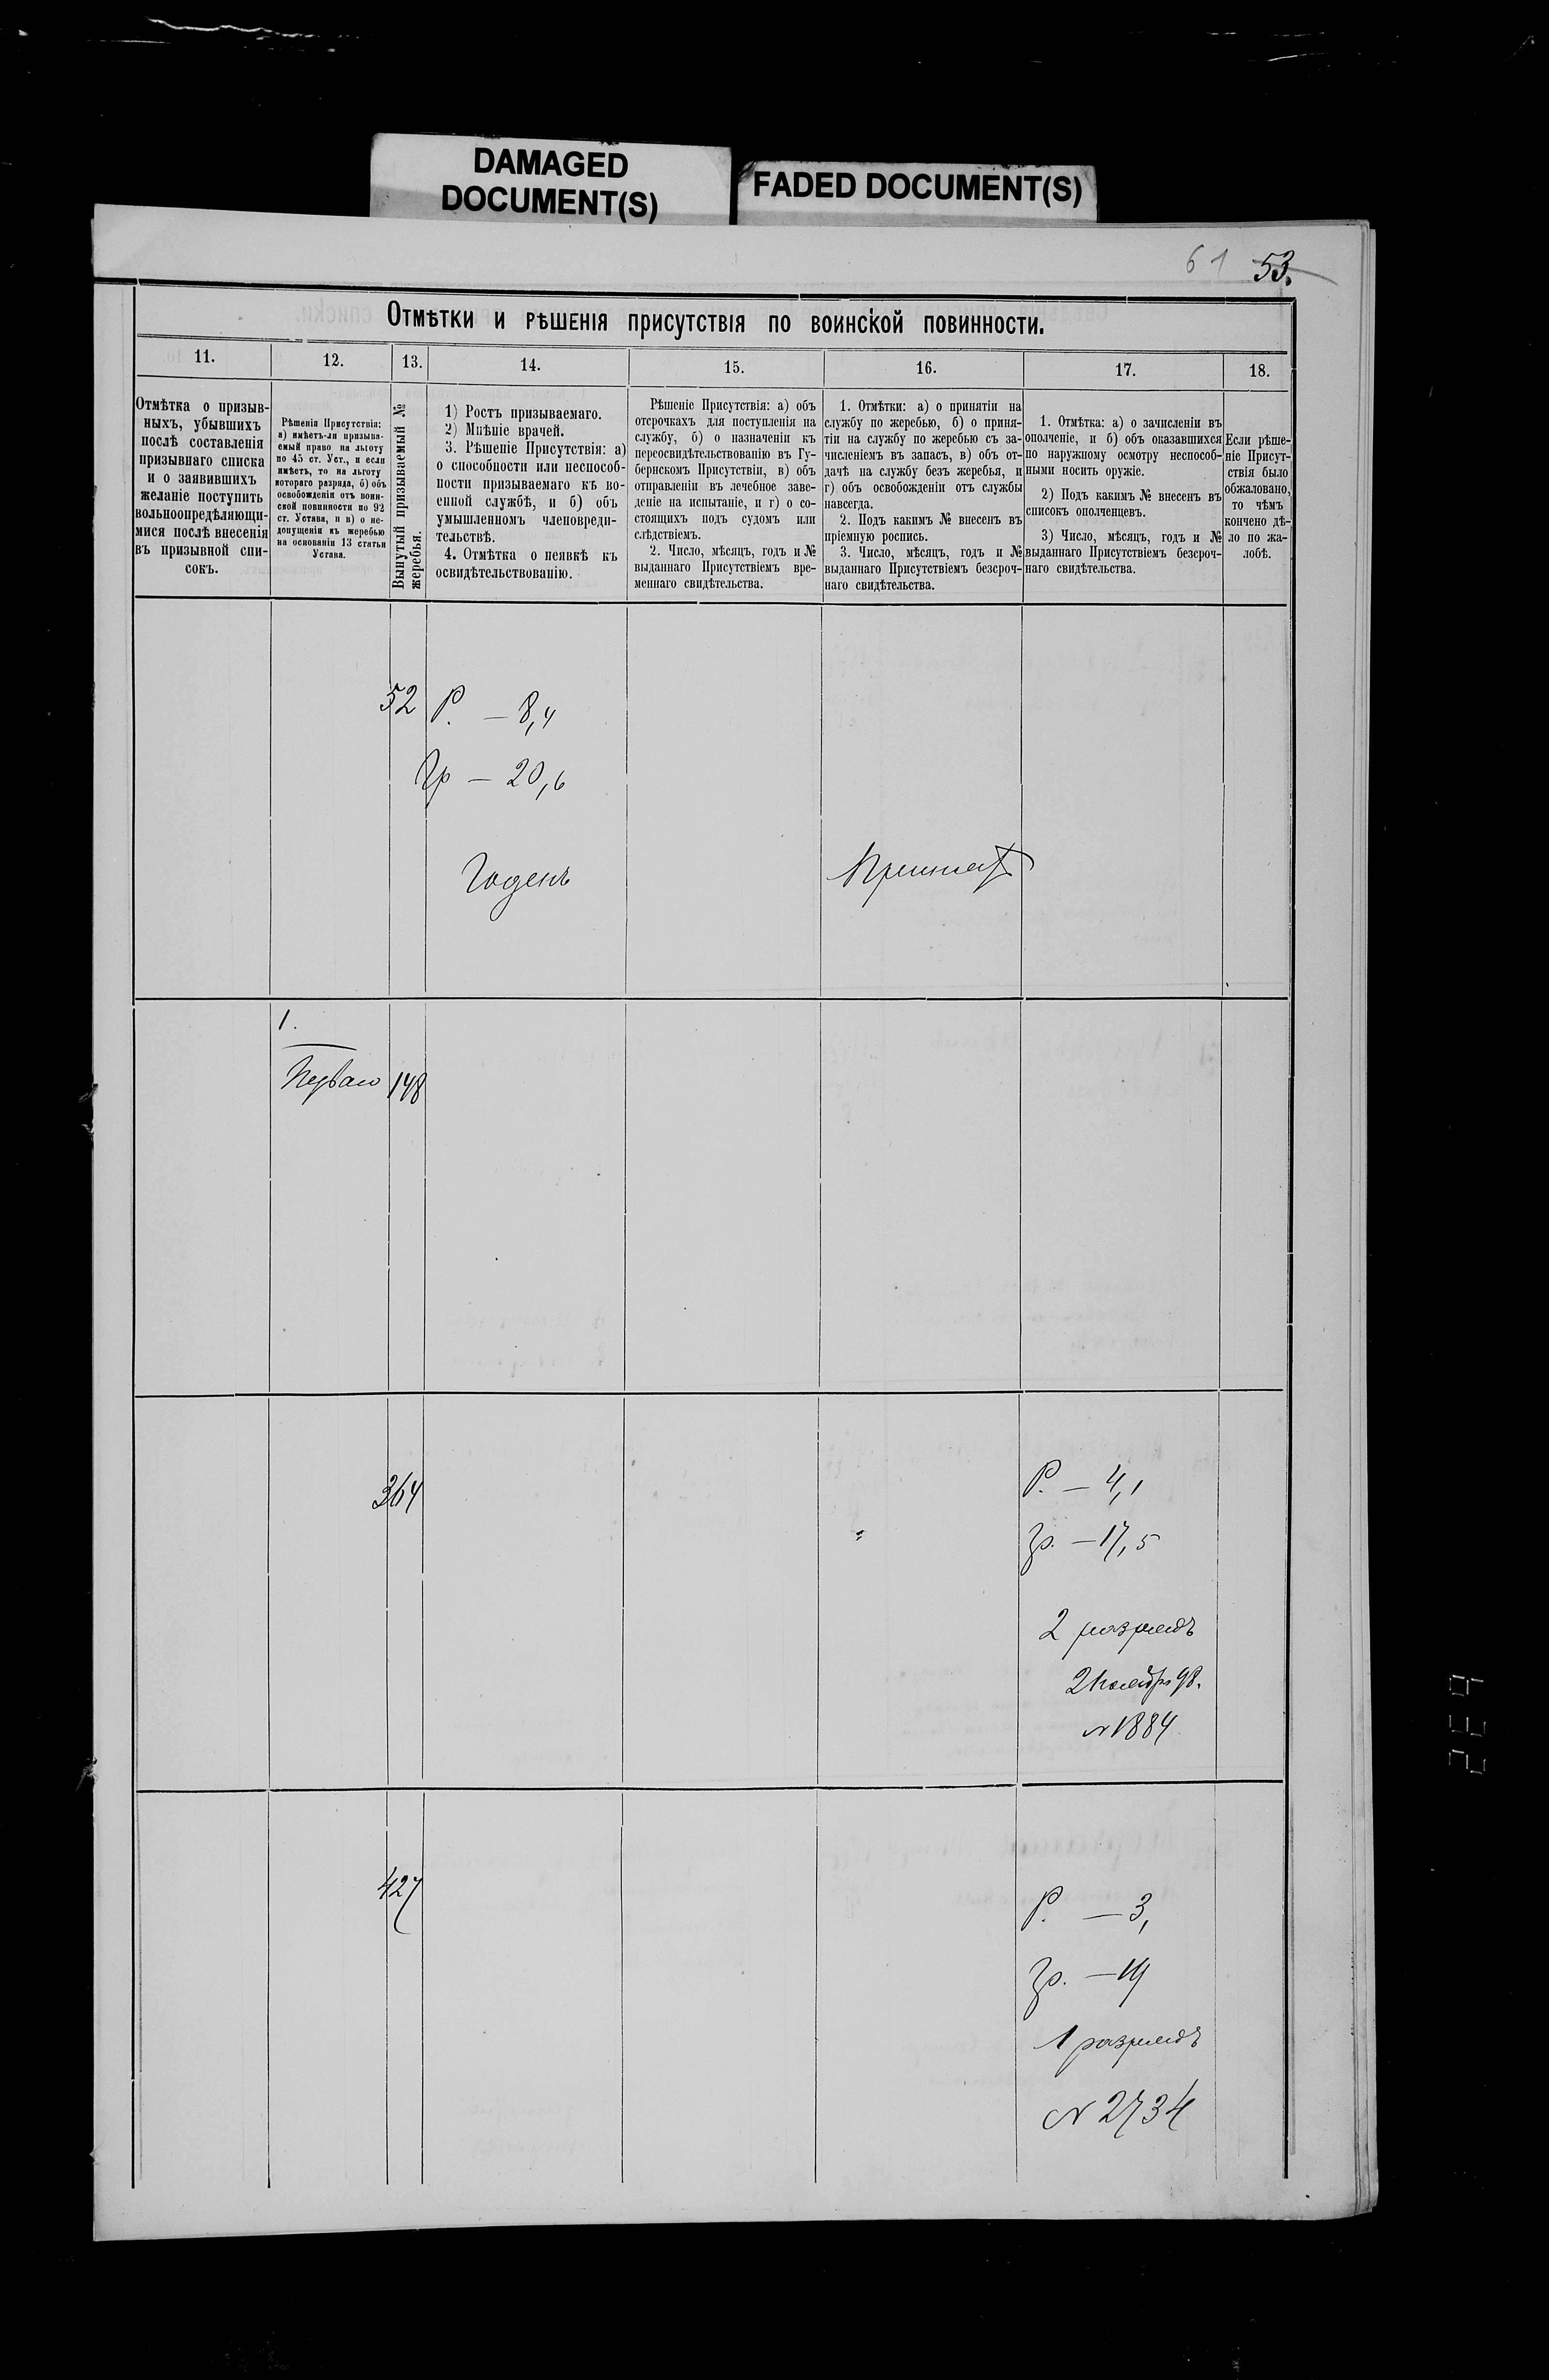 DAMAGED
DOCUMENT(S)
FADED DOCUMENT(S)
61 53.
Отмѣтки и рѣшенія присутствія по воинской повинности.
11. 12. 13. 14. 15. 16. 17. 18.
Отмѣтка о призыв-
ныхъ, убывшихъ
послѣ составленія
призывнаго списка
и о заявившихъ
желаніе поступить
вольноопредѣляющи-
мися послѣ внесенія
въ призывной спи-
сокъ.
Рѣшенія Присутствія:
а) имѣетъ-ли призыва-
емый право на льготу
по 45 ст. Уст., и если
имѣетъ, то на льготу
котораго разряда, б) объ
освобожденіи отъ воин-
ской повинности по 92
ст. Устава, и в) о не-
допущеніи къ жеребью
на основаніи 13 статьи
Устава.
Вынутый призываемый №
жеребья.
1) Ростъ призываемаго.
2) Мнѣніе врачей.
3. Рѣшеніе Присутствія: а)
о способности или неспособ-
ности призываемаго къ во-
енной службѣ, и б) объ
умышленномъ членовреди-
тельствѣ.
4. Отмѣтка о неявкѣ къ
освидѣтельствованію.
Рѣшеніе Присутствія: а) объ
отсрочкахъ для поступленія на
службу, б) о назначеніи къ
переосвидѣтельствованію въ Гу-
бернскомъ Присутствіи, в) объ
отправленіи въ лечебное заве-
деніе на испытаніе, и г) о со-
стоящихъ подъ судомъ или
слѣдствіемъ.
2. Число, мѣсяцъ, годъ и №
выданнаго Присутствіемъ вре-
меннаго свидѣтельства.
1. Отмѣтки: а) о принятіи на
службу по жеребью, б) о приня-
тіи на службу по жеребью съ за-
численіемъ въ запасъ, в) объ от-
дачѣ на службу безъ жеребья, и
г) объ освобожденіи отъ службы
навсегда.
2. Подъ какимъ № внесенъ въ
пріемную роспись.
3. Число, мѣсяцъ, годъ и №
выданнаго Присутствіемъ безсроч-
наго свидѣтельства.
1. Отмѣтка: а) о зачисленіи въ
ополченіе, и б) объ оказавшихся
по наружному осмотру неспособ-
ными носить оружіе.
2) Подъ какимъ № внесенъ въ
списокъ ополченцевъ.
3) Число, мѣсяцъ, годъ и №
выданнаго Присутствіемъ безсроч-
наго свидѣтельства.
Если рѣше-
ніе Присут-
ствія было
обжаловано,
то чѣмъ
кончено дѣ-
ло по жа-
лобѣ.
52 Р. — 8,4
Гр — 20,6
Годенъ
Принятъ
1.
148
364
Р. — 4,1
Гр. — 17,5
2 разрядъ
2 Ноября 98.
№ 1884
427
Р. — 3,
Гр. — 19
1 разрядъ
№ 2734
432